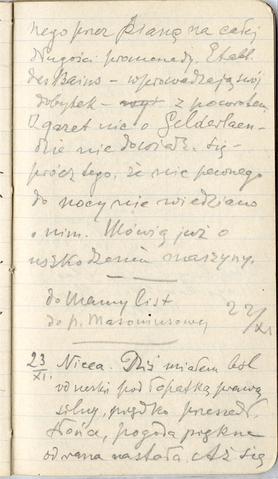 nego przez pianę na całej
długości promenady. Etabl.
des Bains – wprowadzają swój
dobytek – z powrotem.
Z gazet nic o Gelderlaen-
dzie nie dowiedz. się –
prócz tego, że nic pewnego
do nocy nie wiedziano
o nim. Mówią już o
uszkodzeniu maszyny.
do Mamy list
do p. Masoniusowej
22/XI
23/XI. Nicea. Dziś miałem ból
od nerki pod łopatką prawą
silny, prędko przeszedł.
Słońce, pogoda piękna
od rana nastała. Aż się